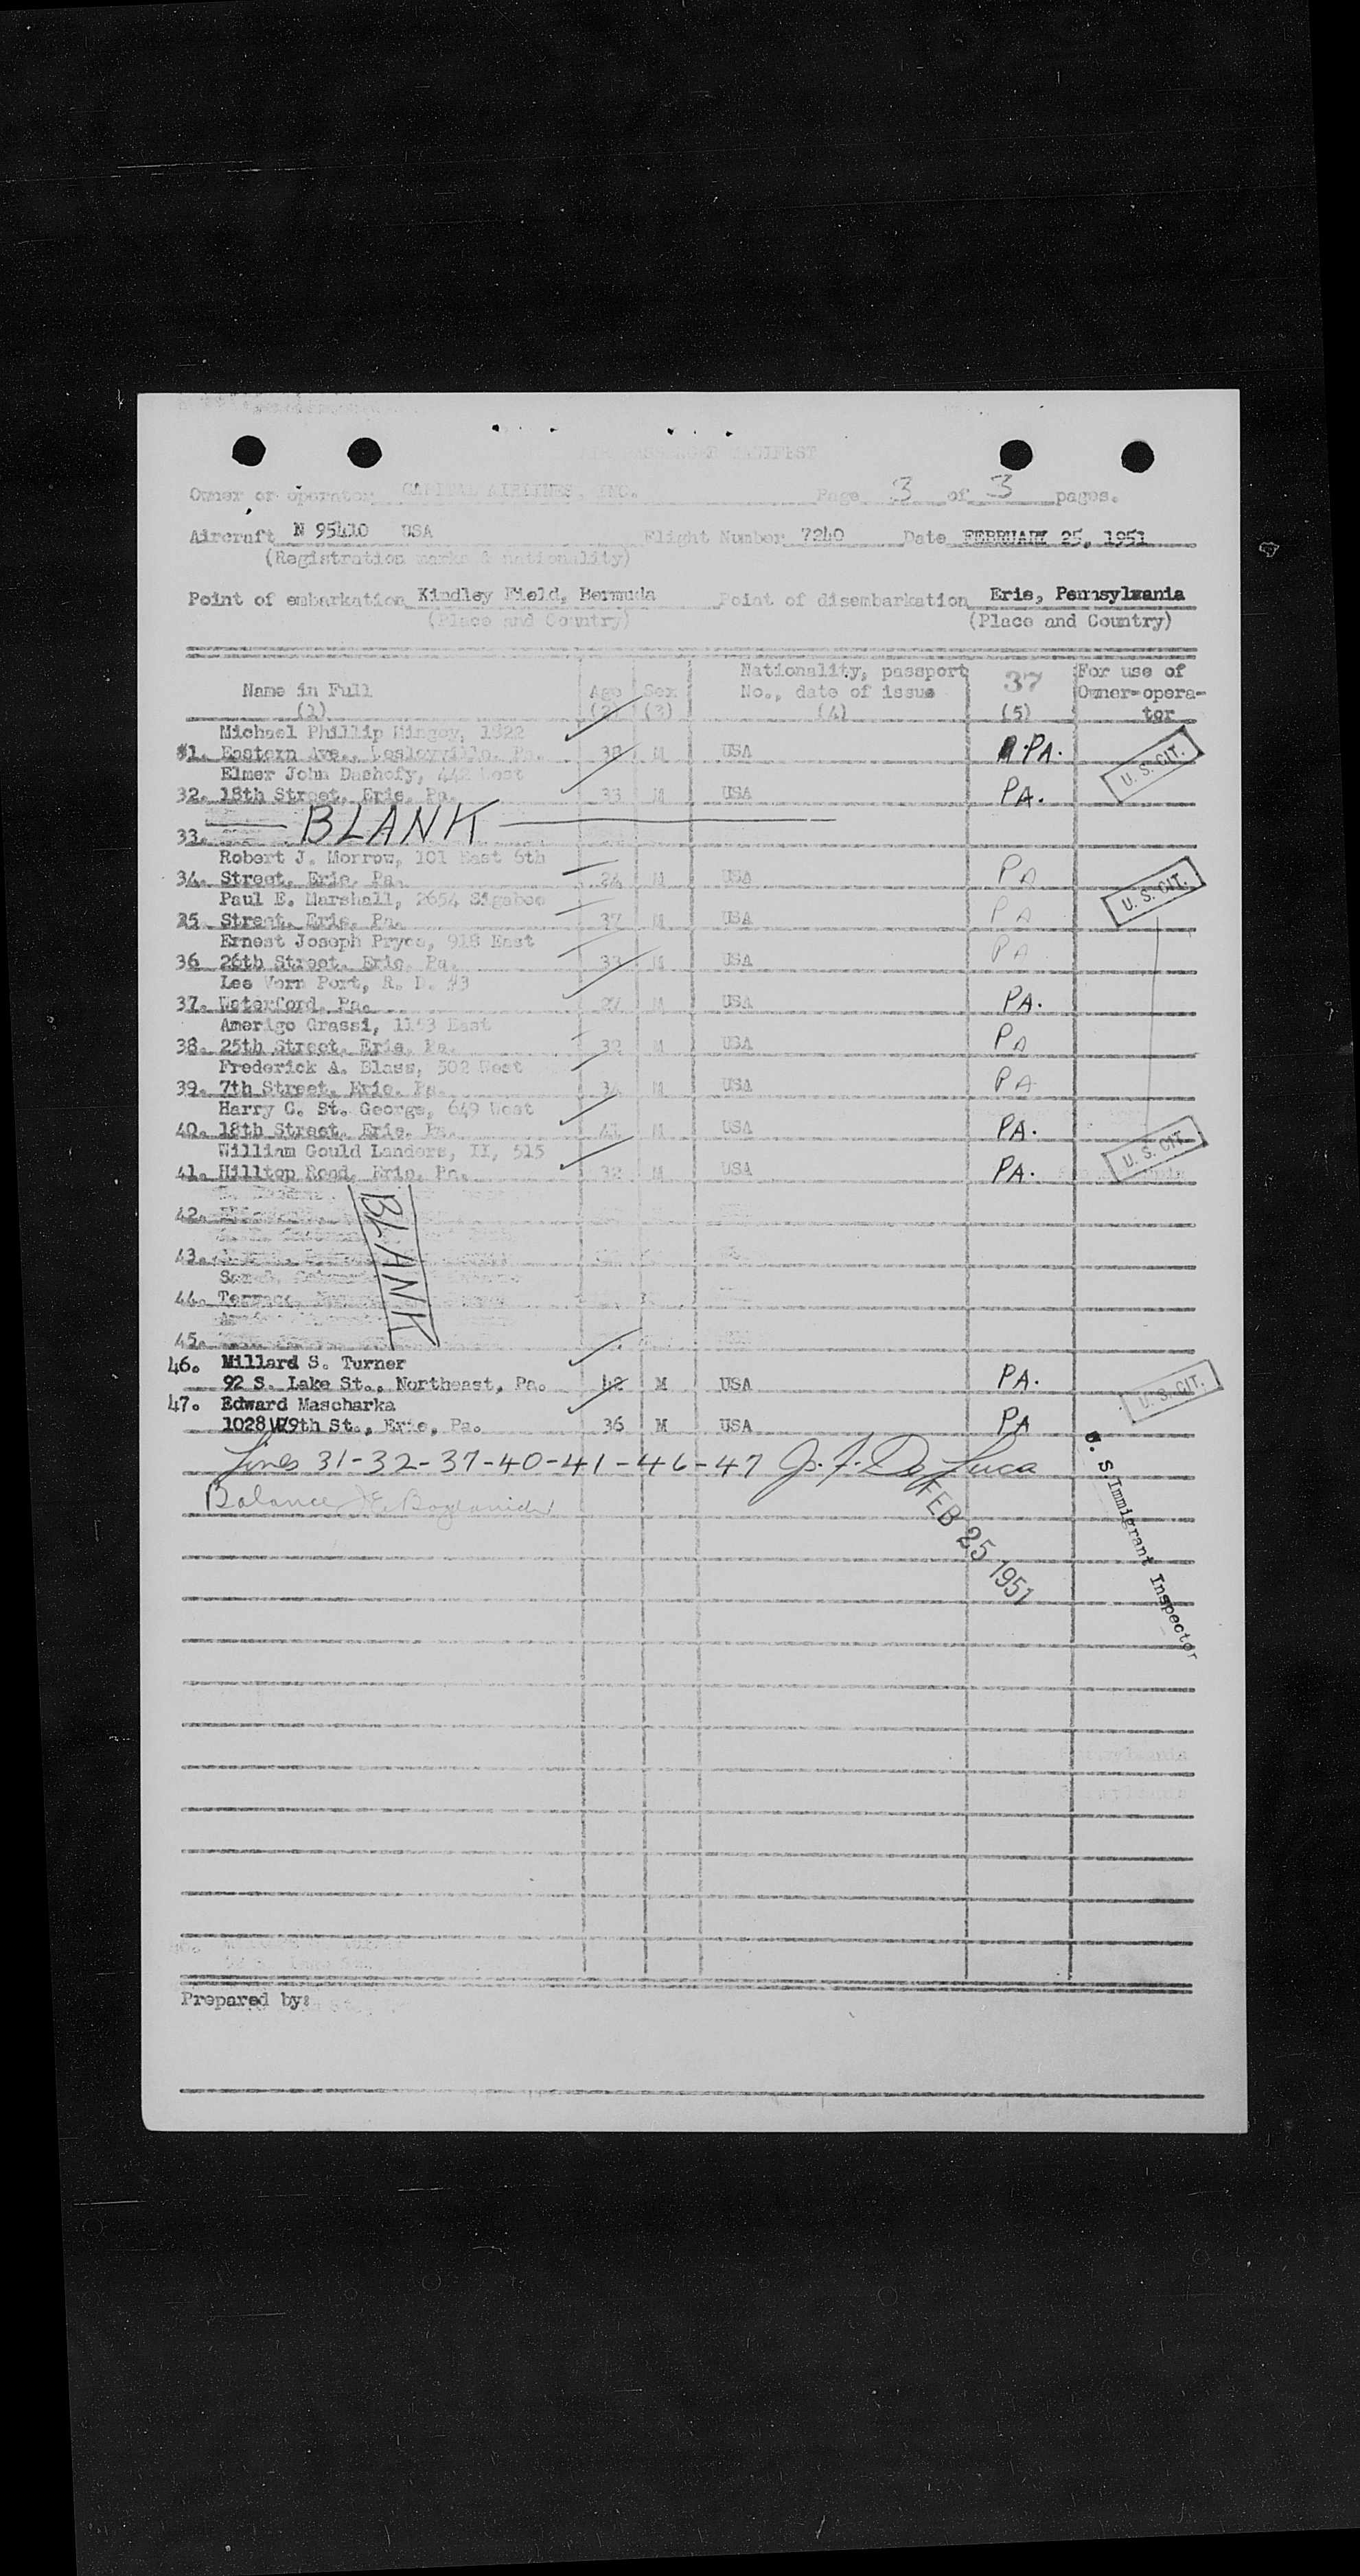 AIR PASSENGER MANIFEST
Owner or operator CAPITAL AIRLINES, INC. Page 3 of 3 pages.
Aircraft N 95410 USA Flight Number 7240 Date FEBRUARY 25, 1951
(Registration marks & nationality)
Point of embarkation Kindley Field, Bermuda Point of disembarkation Erie, Pennsylvania
(Place and Country) (Place and Country)
Nationality, passport 37 For use of
Name in Full Age Sex No., date of issue Owner-opera-
(1) (2) (3) (4) (5) tor
Michael Phillip 1822
31. Eastern Ave., Lesleyville, Pa. 38 M USA PA. U. S. CIT.
Elmer John Dashofy, 442 West
32. 18th Street, Erie, Pa. 33 M USA PA.
33. BLANK
Robert J. Morrow, 101 East 6th
34. Street, Erie, Pa. 24 M USA PA U. S. CIT.
Paul E. Marshall, 2654 Sigsbee
35. Street, Erie, Pa. 37 M USA PA
Ernest Joseph Pryce, 918 East
36 26th Street, Erie, Pa. 33 M USA PA
Lee Vern Port, R. D. #3
37. Waterford, Pa. 27 M USA PA.
Amerigo Grassi, 1153 East
38. 25th Street, Erie, Pa. 32 M USA PA
Frederick A. Blass, 502 West
39. 7th Street, Erie, Pa. 34 M USA PA
Harry C. St. George, 649 West
40. 18th Street, Erie, Pa. 41 M USA PA.
William Gould Landers, II, 515
41. Hilltop Road, Erie, Pa. 32 M USA PA. U. S. CIT.
42.
43.
BLANK
44. Terrace,
45.
46. Millard S. Turner
92 S. Lake St., Northeast, Pa. 42 M USA PA. U. S. CIT.
47. Edward Mascharka
1028 W 29th St., Erie, Pa. 36 M USA PA
Lines 31-32-37-40-41-46-47 J. F. De Luca
U. S. Immigrant Inspector
Balance
FEB 25 1951
Prepared by: